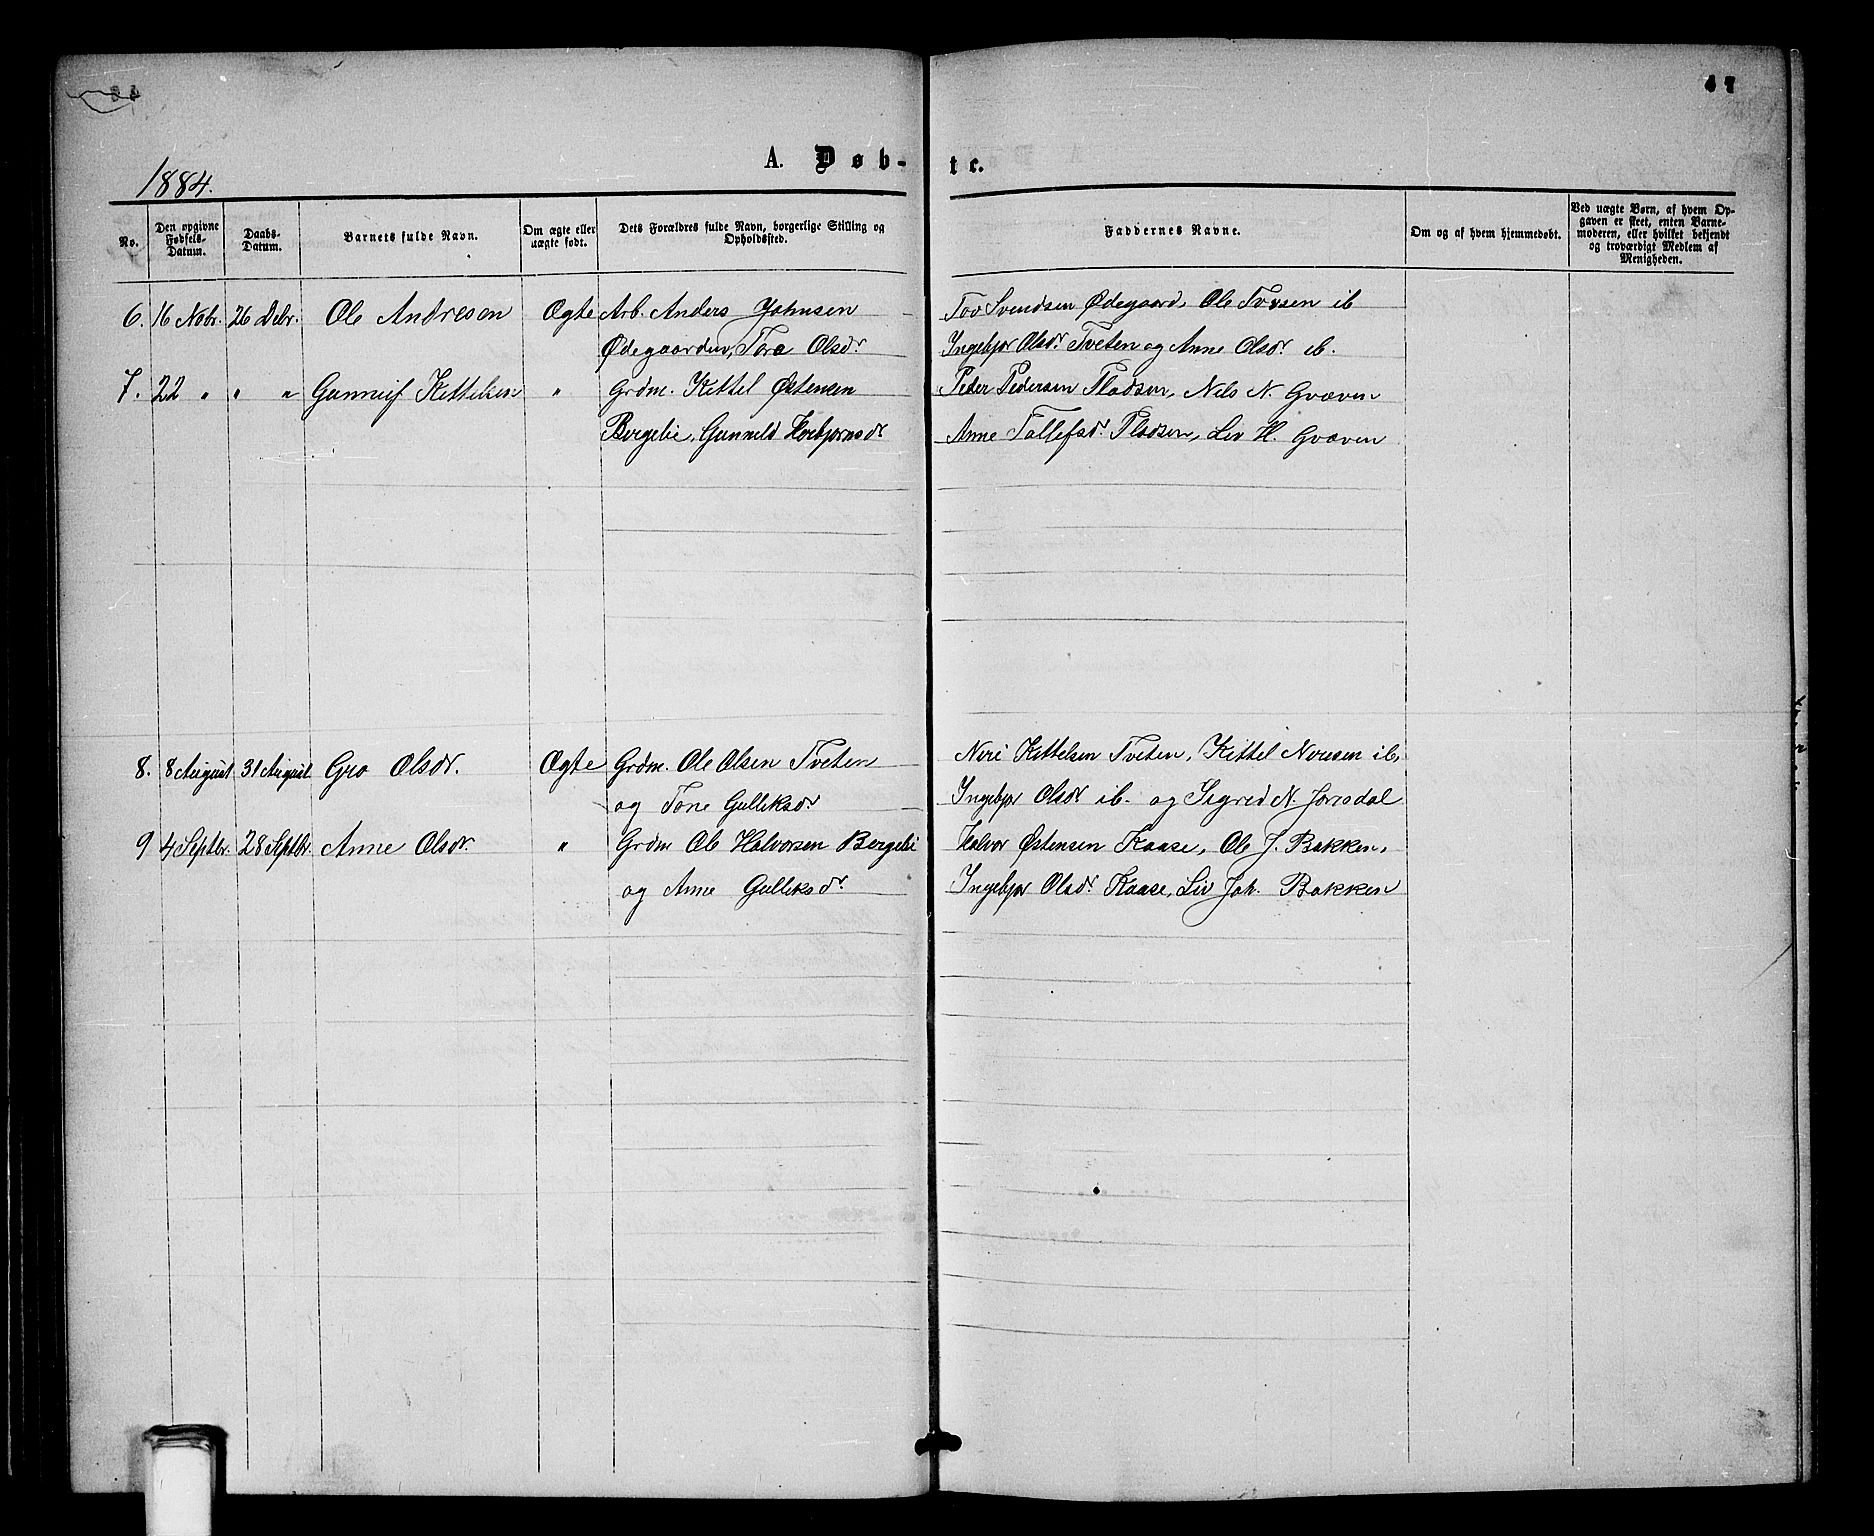 47
A. Døb-
te.
1884.
No.
Den opgivne Fødsels-Datum.
Daabs-Datum.
Barnets fulde Navn.
Om ægte eller uægte født.
Dets Forældres fulde Navn, borgerlige Stilling og Opholdssted.
Faddernes Navne.
Om og af hvem hjemmedøbt.
Ved uægte Børn, af hvem Opgaven er skeet, enten Barnemoderen, eller hvilket bekjendt og troværdigt Medlem af Menigheden.
6. 16 Nobr. 26 Debr. Ole Andresen Ægte Arb. Anders Johnsen Tov Svendsen Ødegaard, Ole Tovsen ib
Ødegaarden, Tora Olsdr Ingebjør Olsdr Tveten og Anne Olsdr ib.
7. 22 " " " Gunneif Kittelsen " Grdm. Kittel Østensen Peder Pedersen Pladsen, Nils N. Gvæven
Bergelie, Gunneld Torbjørnsdr Anne Tollefsdr Pladsen, Liv H. Gvæven
8. 8 August 31 August Gro Olsdr. Ægte Grdm. Ole Olsen Tveten Neri Kittelsen Tveten, Kittel Nerisen ib,
og Tone Gulliksdr Ingebjør Olsdr ib. og Sigrid N. Jorrsdal
9 4 Septbr. 28 Septbr. Anne Olsdr. " Grdm Ole Halvorsen Bergelie Halvor Østensen Kaase, Ole J. Bakken,
og Anne Gulliksdr. Ingebjør Olsdr Kaase, Liv Joh. Bakken